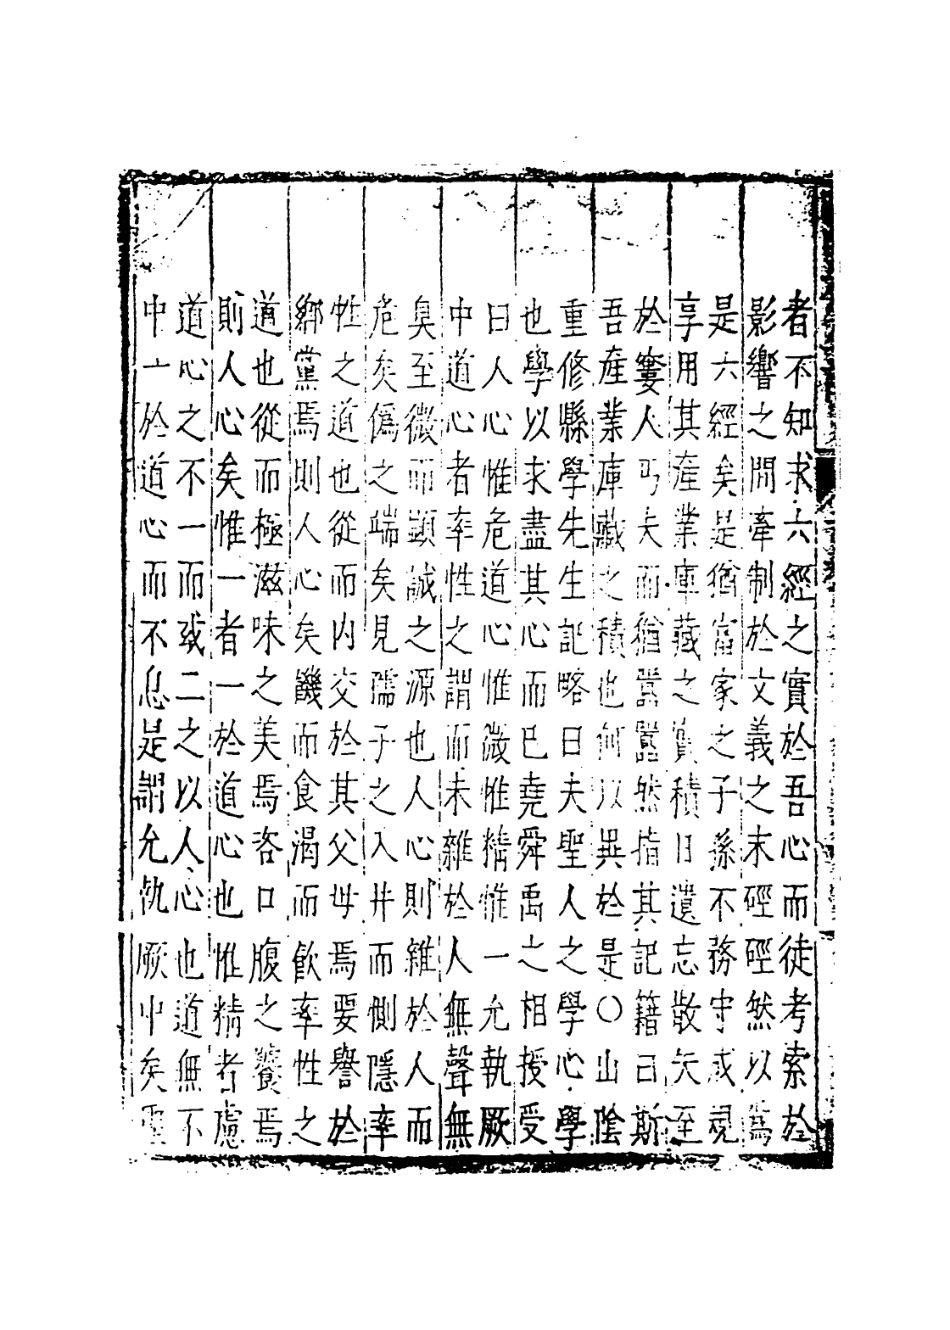 者不知求六經之實於吾心而徒考索於
影響之間牽制於文義之末硜硜然以為
是六經矣是猶富家之子孫不務守成視
享用其產業庫藏之實積日遺忘散失至
於窶人丐夫而猶囂囂然指其記籍曰斯
吾產業庫藏之積也何以異於是○山陰
重修縣學先生記略曰夫聖人之學心學
也學以求盡其心而已堯舜禹之相授受
曰人心惟危道心惟微惟精惟一允執厥
中道心者率性之謂而未雜於人無聲無
臭至微而顯誠之源也人心則雜於人而
危矣偽之端矣見孺子之入井而惻隱率
性之道也從而內交於其父母焉要譽於
鄉黨焉則人心矣饑而食渴而飲率性之
道也從而極滋味之美焉恣口腹之饕焉
則人心矣惟一者一於道心也惟精者慮
道心之不一而或二之以人心也道無不
中一於道心而不息是謂允執厥中矣